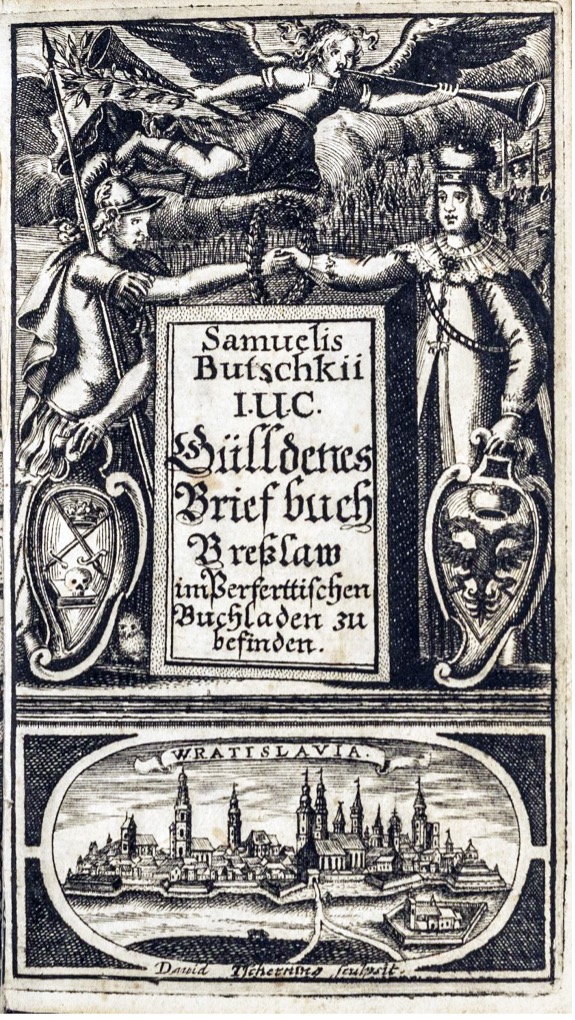 Samuelis
Butschkii
I.U.C.
Gülldenes
Brief buch
Breßlaw
im Perferttischen
Buchladen zu
befinden.
WRATISLAVIA.
David Tscherning sculpsit.